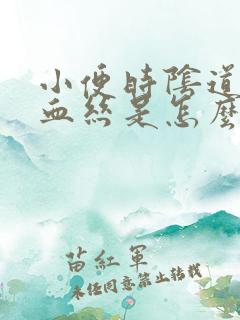 小便時陰道
血絲是怎麼
苗紅軍
未经同意禁止转载